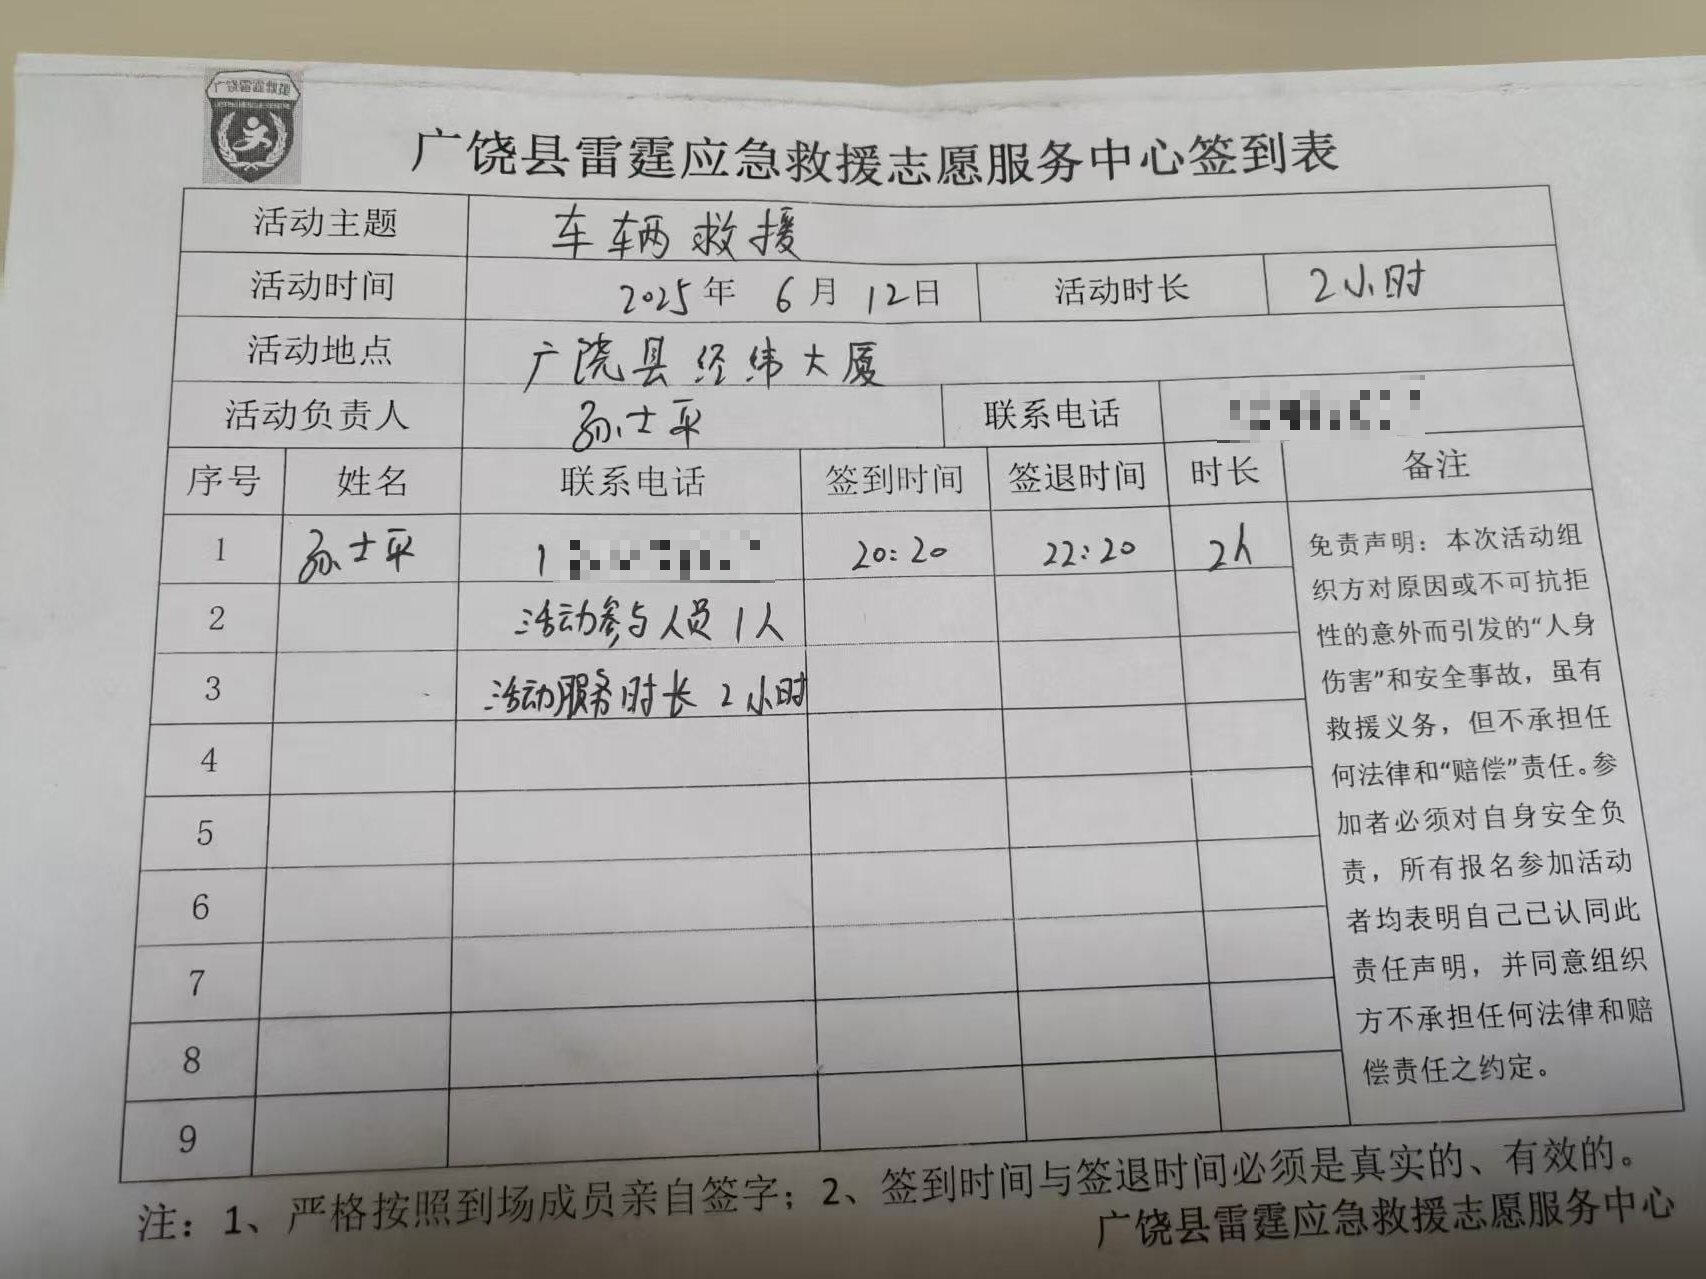 广饶雷霆救援
广饶县雷霆应急救援志愿服务中心签到表
活动主题 车辆救援
活动时间 2025年 6月 12日 活动时长 2小时
活动地点 广饶县经纬大厦
活动负责人 孙士平 联系电话
序号 姓名 联系电话 签到时间 签退时间 时长 备注
1 孙士平 1 20:20 22:20 2h
2 活动参与人员1人
3 活动服务时长2小时
4
5
6
7
8
9
免责声明：本次活动组
织方对原因或不可抗拒
性的意外而引发的“人身
伤害”和安全事故，虽有
救援义务，但不承担任
何法律和“赔偿”责任。参
加者必须对自身安全负
责，所有报名参加活动
者均表明自己已认同此
责任声明，并同意组织
方不承担任何法律和赔
偿责任之约定。
注：1、严格按照到场成员亲自签字；2、签到时间与签退时间必须是真实的、有效的。
广饶县雷霆应急救援志愿服务中心